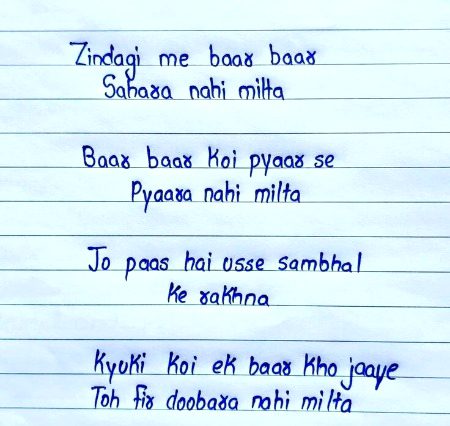 Zindagi me baar baar
Sahara nahi milta
Baar baar koi pyaar se
Pyaara nahi milta
Jo paas hai usse sambhal
Ke rakhna
Kyuki koi ek baar kho jaaye
Toh fir doobara nahi milta